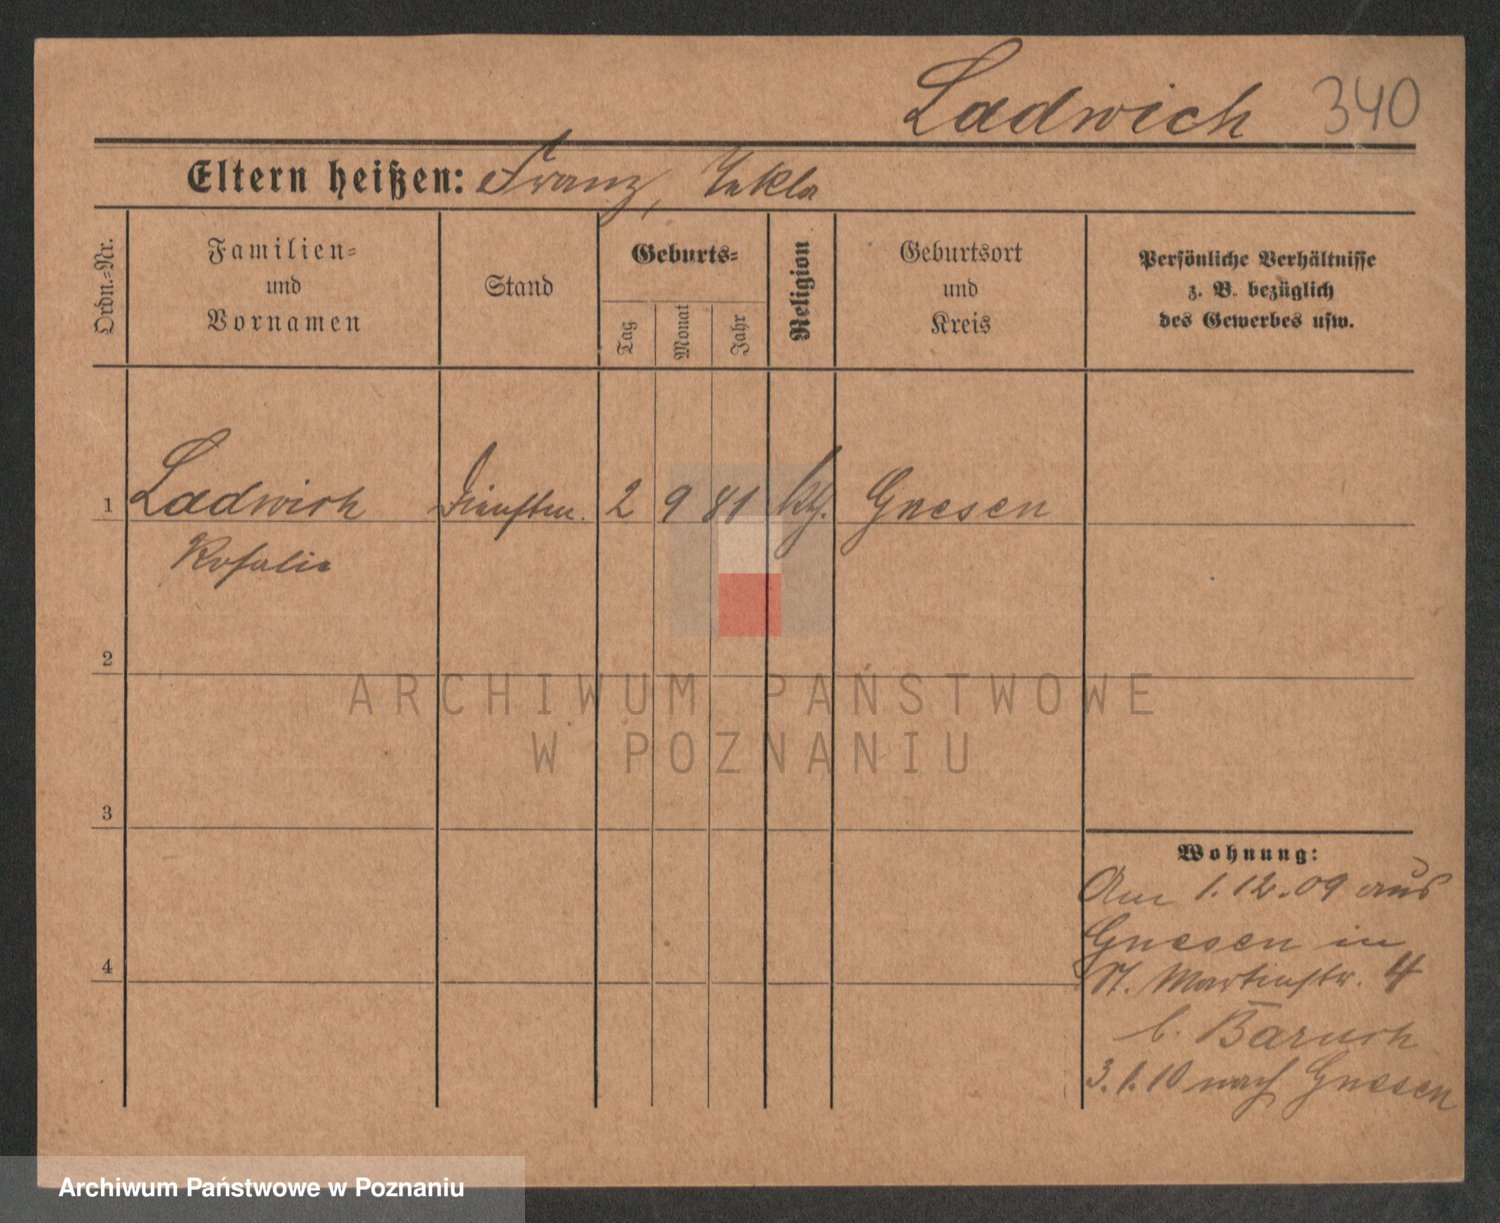 Ladwich 340
Eltern heißen: Franz, Tekla
Ordn.-Nr.
Familien-
und
Vornamen
Stand
Geburts-
Tag
Monat
Jahr
Religion
Geburtsort
und
Kreis
Persönliche Verhältnisse
z. B. bezüglich
des Gewerbes usw.
1 Ladwich Dienstm. 2 9 81 kth. Gnesen
Rosalie
2
3
4
Wohnung:
Am 1.12.09 aus
Gnesen in
St. Martinstr. 4
b. Baruch
3.1.10 nach Gnesen
ARCHIWUM PAŃSTWOWE
W POZNANIU
Archiwum Państwowe w Poznaniu